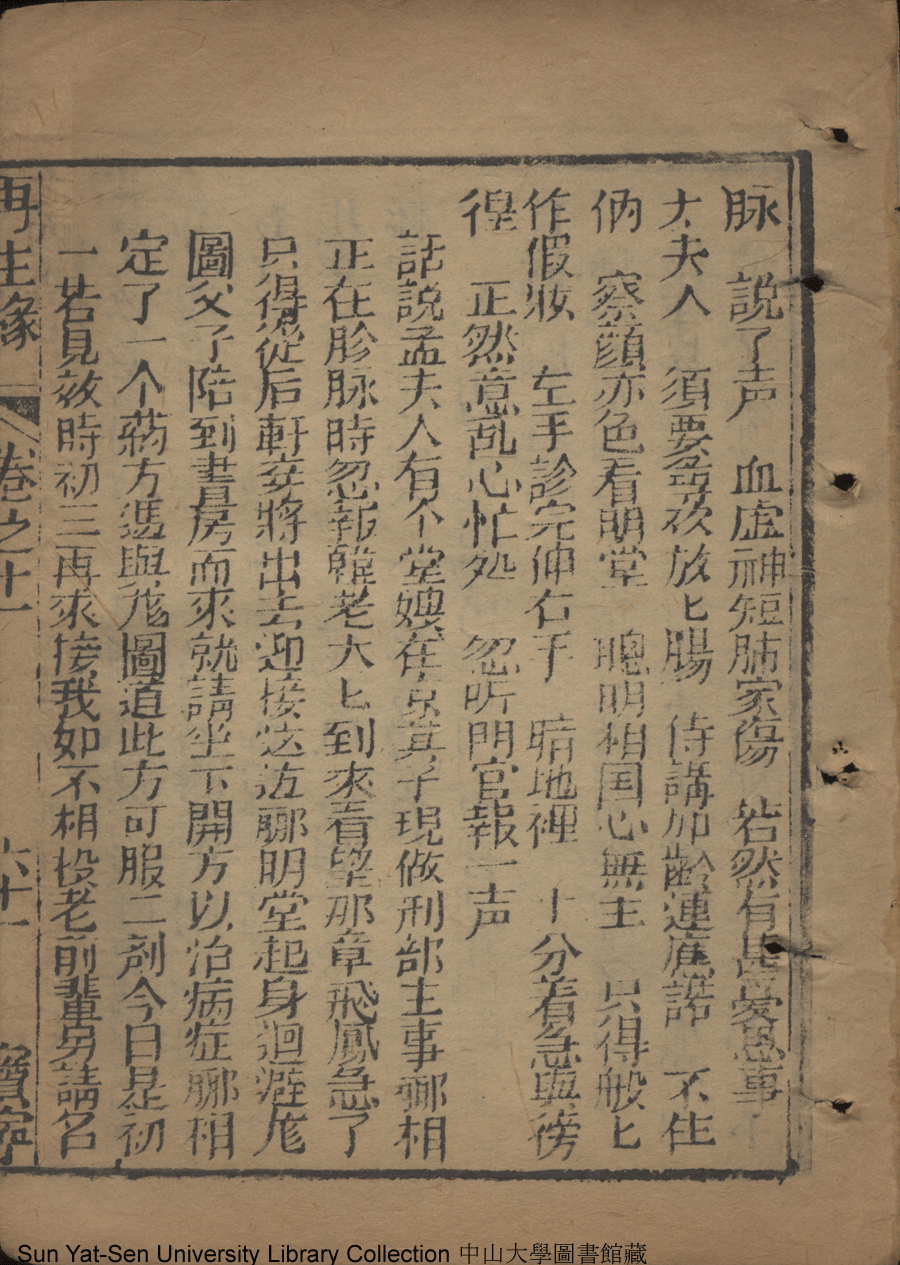 脉　說了声　血虛神短肺家傷　若然有甚憂愚事
太夫人　須要寬放放匕腸　侍講加齡連應諾　不住
㑂　察顏亦色看明堂　聰明相国心無主　只得般匕
作假妝　左手診完伸右手　暗地裡　十分着急與徬
徨　正然意乱心忙処　忽听門官報一声
話說孟夫人有个堂嫂在京其子現做刑部主事鄺相
正在胗脉時忽報韓老大匕到來看望那章飛鳳急了
只得從后軒妾將出去迎接这边鄺明堂起身迴避尨
圖父子陪到書房而來就請坐下開方以治病症鄺相
定了一个藥方遞與尨圖道此方可服二剤今日是初
一若見效時初三再來接我如不相投老前輩另請名
再生緣　卷之十一　六十一　寶寧
Sun Yat-Sen University Library Collection 中山大學圖書館藏